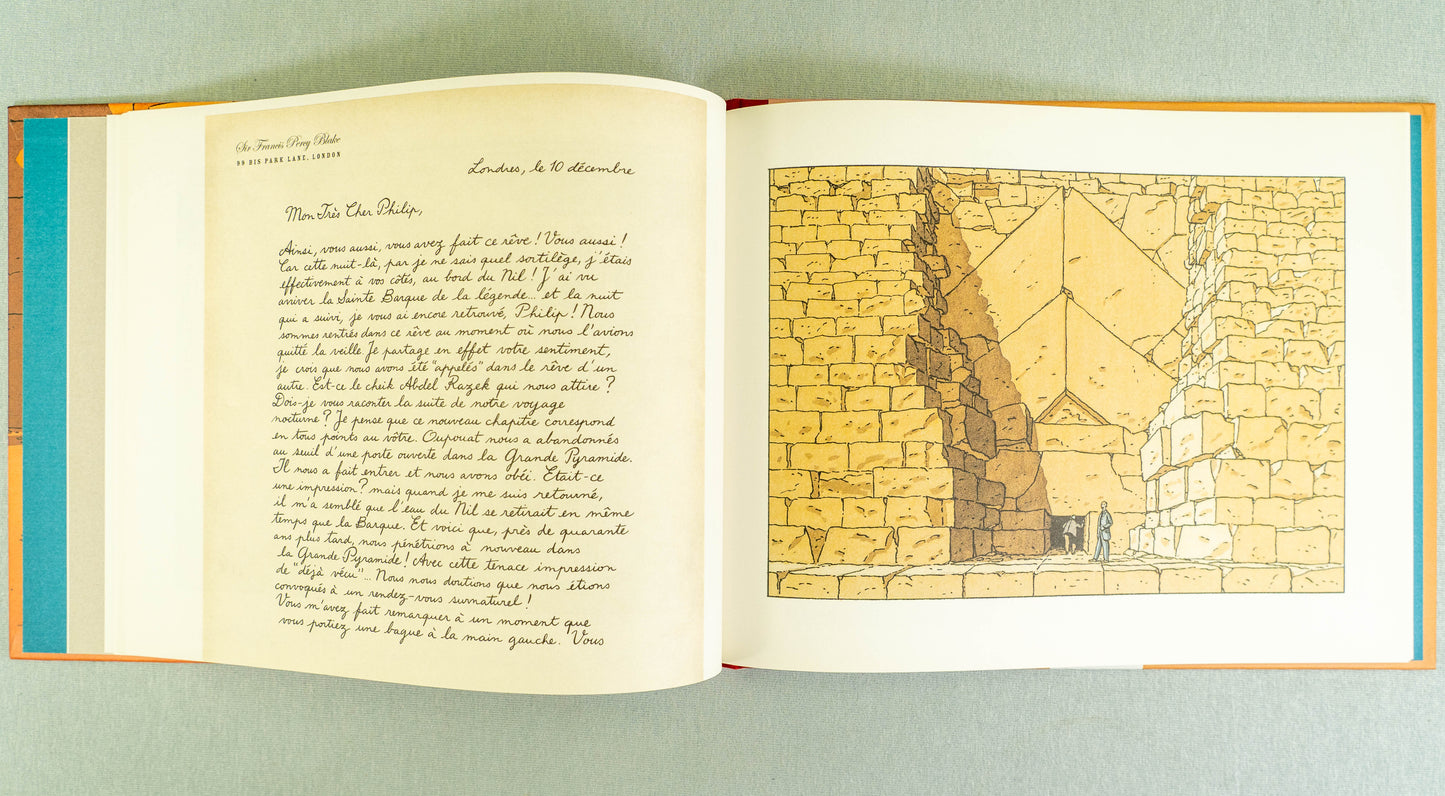 Sir Francis Percy Blake
99 BIS PARK LANE, LONDON
Londres, le 10 décembre
Mon Très Cher Philip,
Ainsi, vous aussi, vous avez fait ce rêve ! Vous aussi !
Car cette nuit-là, par je ne sais quel sortilège, j'étais
effectivement à vos côtés, au bord du Nil ! J'ai vu
arriver la Sainte Barque de la légende... et la nuit
qui a suivi, je vous ai encore retrouvé, Philip ! Nous
sommes rentrés dans ce rêve au moment où nous l'avions
quitté la veille. Je partage en effet votre sentiment,
je crois que nous avons été "appelés" dans le rêve d'un
autre. Est-ce le cheik Abdel Razek qui nous attire ?
Dois-je vous raconter la suite de notre voyage
nocturne ? Je pense que ce nouveau chapitre correspond
en tous points au vôtre. Oupouat nous a abandonnés
au seuil d'une porte ouverte dans la Grande Pyramide.
Il nous a fait entrer et nous avons obéi. Etait-ce
une impression ? mais quand je me suis retourné,
il m'a semblé que l'eau du Nil se retirait en même
temps que la Barque. Et voici que, près de quarante
ans plus tard, nous pénétrions à nouveau dans
la Grande Pyramide ! Avec cette tenace impression
de "déjà vécu"... Nous nous doutions que nous étions
convoqués à un rendez-vous surnaturel !
Vous m'avez fait remarquer à un moment que
vous portiez une bague à la main gauche. Vous